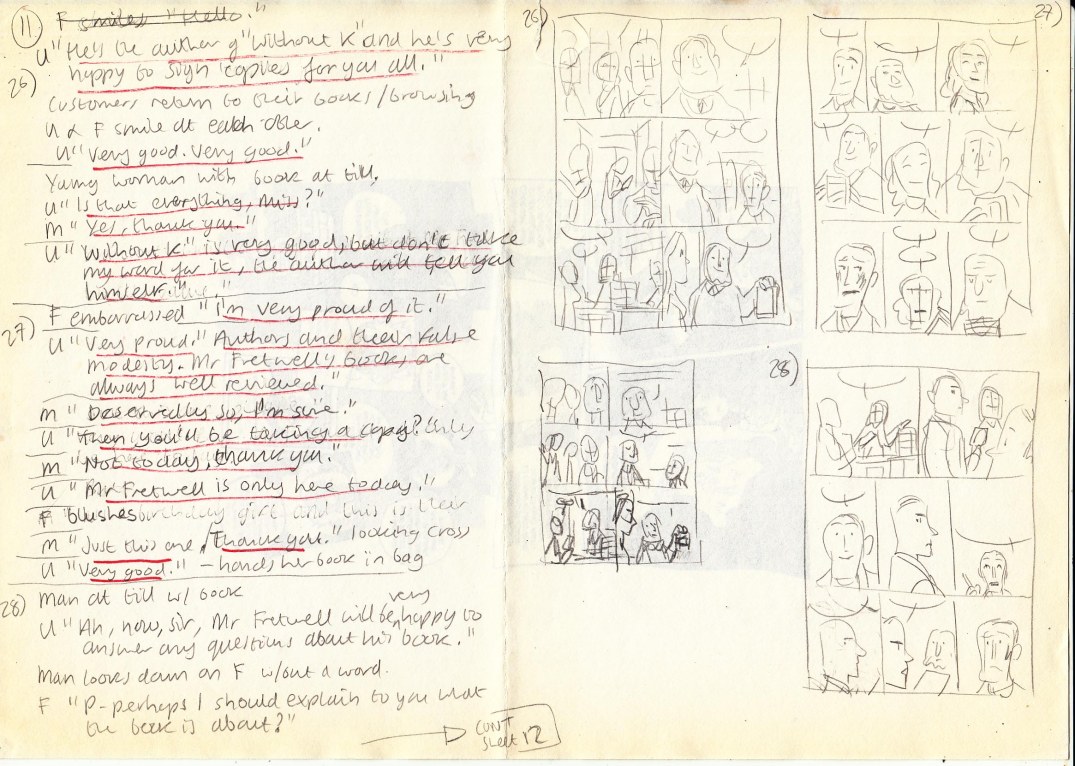 11. F smiles "Hello."
U "He's the author of "Without K" and he's very
happy to sign copies for you all."
26)
Customers return to their books/browsing
U & F smile at each other.
U "Very good. Very good."
Young woman with book at till.
U "Is that everything, miss?"
M "Yes, thank you."
U "Without K" is very good, but don't take
my word for it, the author will tell you
himself."
F embarrassed "I'm very proud of it."
27)
U "Very proud." Authors and their false
modesty. Mr Fretwell's books are
always well reviewed."
M "Deservedly so, I'm sure."
U "Then you'll be taking a copy? Only
M "Not today, thank you."
U "Mr Fretwell is only here today."
F blushes birthday girl and this is their
M "Just this one, thank you." looking cross
U "Very good." – hands her book in bag
28) Man at till w/ book
U "Ah, now, sir, Mr Fretwell will be very happy to
answer any questions about his book."
Man looks down on F w/out a word.
F "P-perhaps I should explain to you what
the book is about?"
CONT
SHEET 12
26)
27)
28)